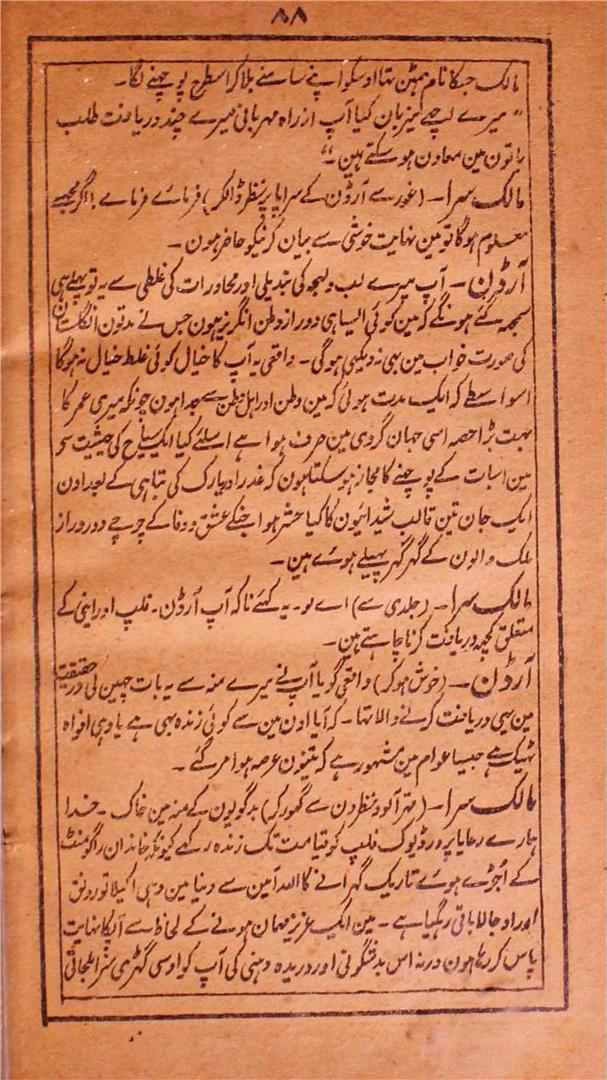 ۸۸
مالک جسکا نام ہمٹن تہا اوسکو اپنے سامنے بلا کر اسطرح پوچہنے لگا۔
"میرے اچہے میزبان کیا آپ از راہ مہربانی میرے چند دریافت طلب
باتون مین معاون ہو سکتے ہین۔"
مالک سرا۔ (غور سے آرڈن کے سراپا پر نظر ڈالکر) فرمائے فرمائے! اگر مجہے
معلوم ہوگا تو مین نہایت خوشی سے بیان کرنیکو حاضر ہون۔
آرڈن۔ آپ میرے لب و لہجہ کی تبدیلی اور محاورات کی غلطی سے یہ تو پہلے ہی
سمجہہ گئے ہونگے کہ مین کوئی ایسا ہی دور از وطن انگریز ہون جس نے مدتون انگلستان
کی صورت خواب مین بہی نہ دیکہی ہوگی۔ واقعی یہ آپ کا خیال کوئی غلط خیال نہ ہوگا
اسواسطے کہ ایک مدت ہوئی کہ مین وطن اور اہل وطن سے جدا ہون چونکہ میری عمر کا
بہت بڑا حصہ اسی جہان گردی مین صرف ہوا ہے اسلئے کیا ایک سیاح کی حیثیت سے
مین اسبات کے پوچہنے کا مجاز ہو سکتا ہون کہ غدر اڈیارک کی تباہی کے بعد اون
ایک جان تین قالب شیدائیون کا کیا حشر ہوا جنکے عشق و وفا کے چرچے دور دراز
ملک والون کے گہر گہر پہیلے ہوئے ہین۔
مالک سرا۔ (جلدی سے) اے لو۔ یہ کہئے نا کہ آپ آرڈن۔ فلپ اور اینی کے
متعلق کچہہ دریافت کرنا چاہتے ہین۔
آرڈن۔ (خوش ہوکر) واقعی گویا آپ نے میرے منہ سے یہ بات چہین لی در حقیقت
مین یہی دریافت کرنے والا تہا۔ کہ آیا اون مین سے کوئی زندہ بہی ہے یا وہی افواہ
ٹہیک ہے جیسا عوام مین مشہور ہے کہ تینون عرصہ ہوا مر گئے۔
مالک سرا۔ (قہر آلود نظرون سے گہور کر) بدگویون کے منہ مین خاک۔ خدا
ہمارے رعایا پرور ڈیوک فلپ کو قیامت تک زندہ رکہے کیونکہ خاندان راگومنٹ
کے اُجڑے ہوئے تاریک گہرانے کا اللہ آمین سے دنیا مین وہی اکیلا تو رونق
اور اوجالا باقی رہگیا ہے۔ مین ایک عزیز مہمان ہونے کے لحاظ سے آپکا نہایت
پاس کر رہا ہون ورنہ اس بدشگونی اور دریدہ دہنی کی آپ کو اوسی گہڑی سزا ملجاتی